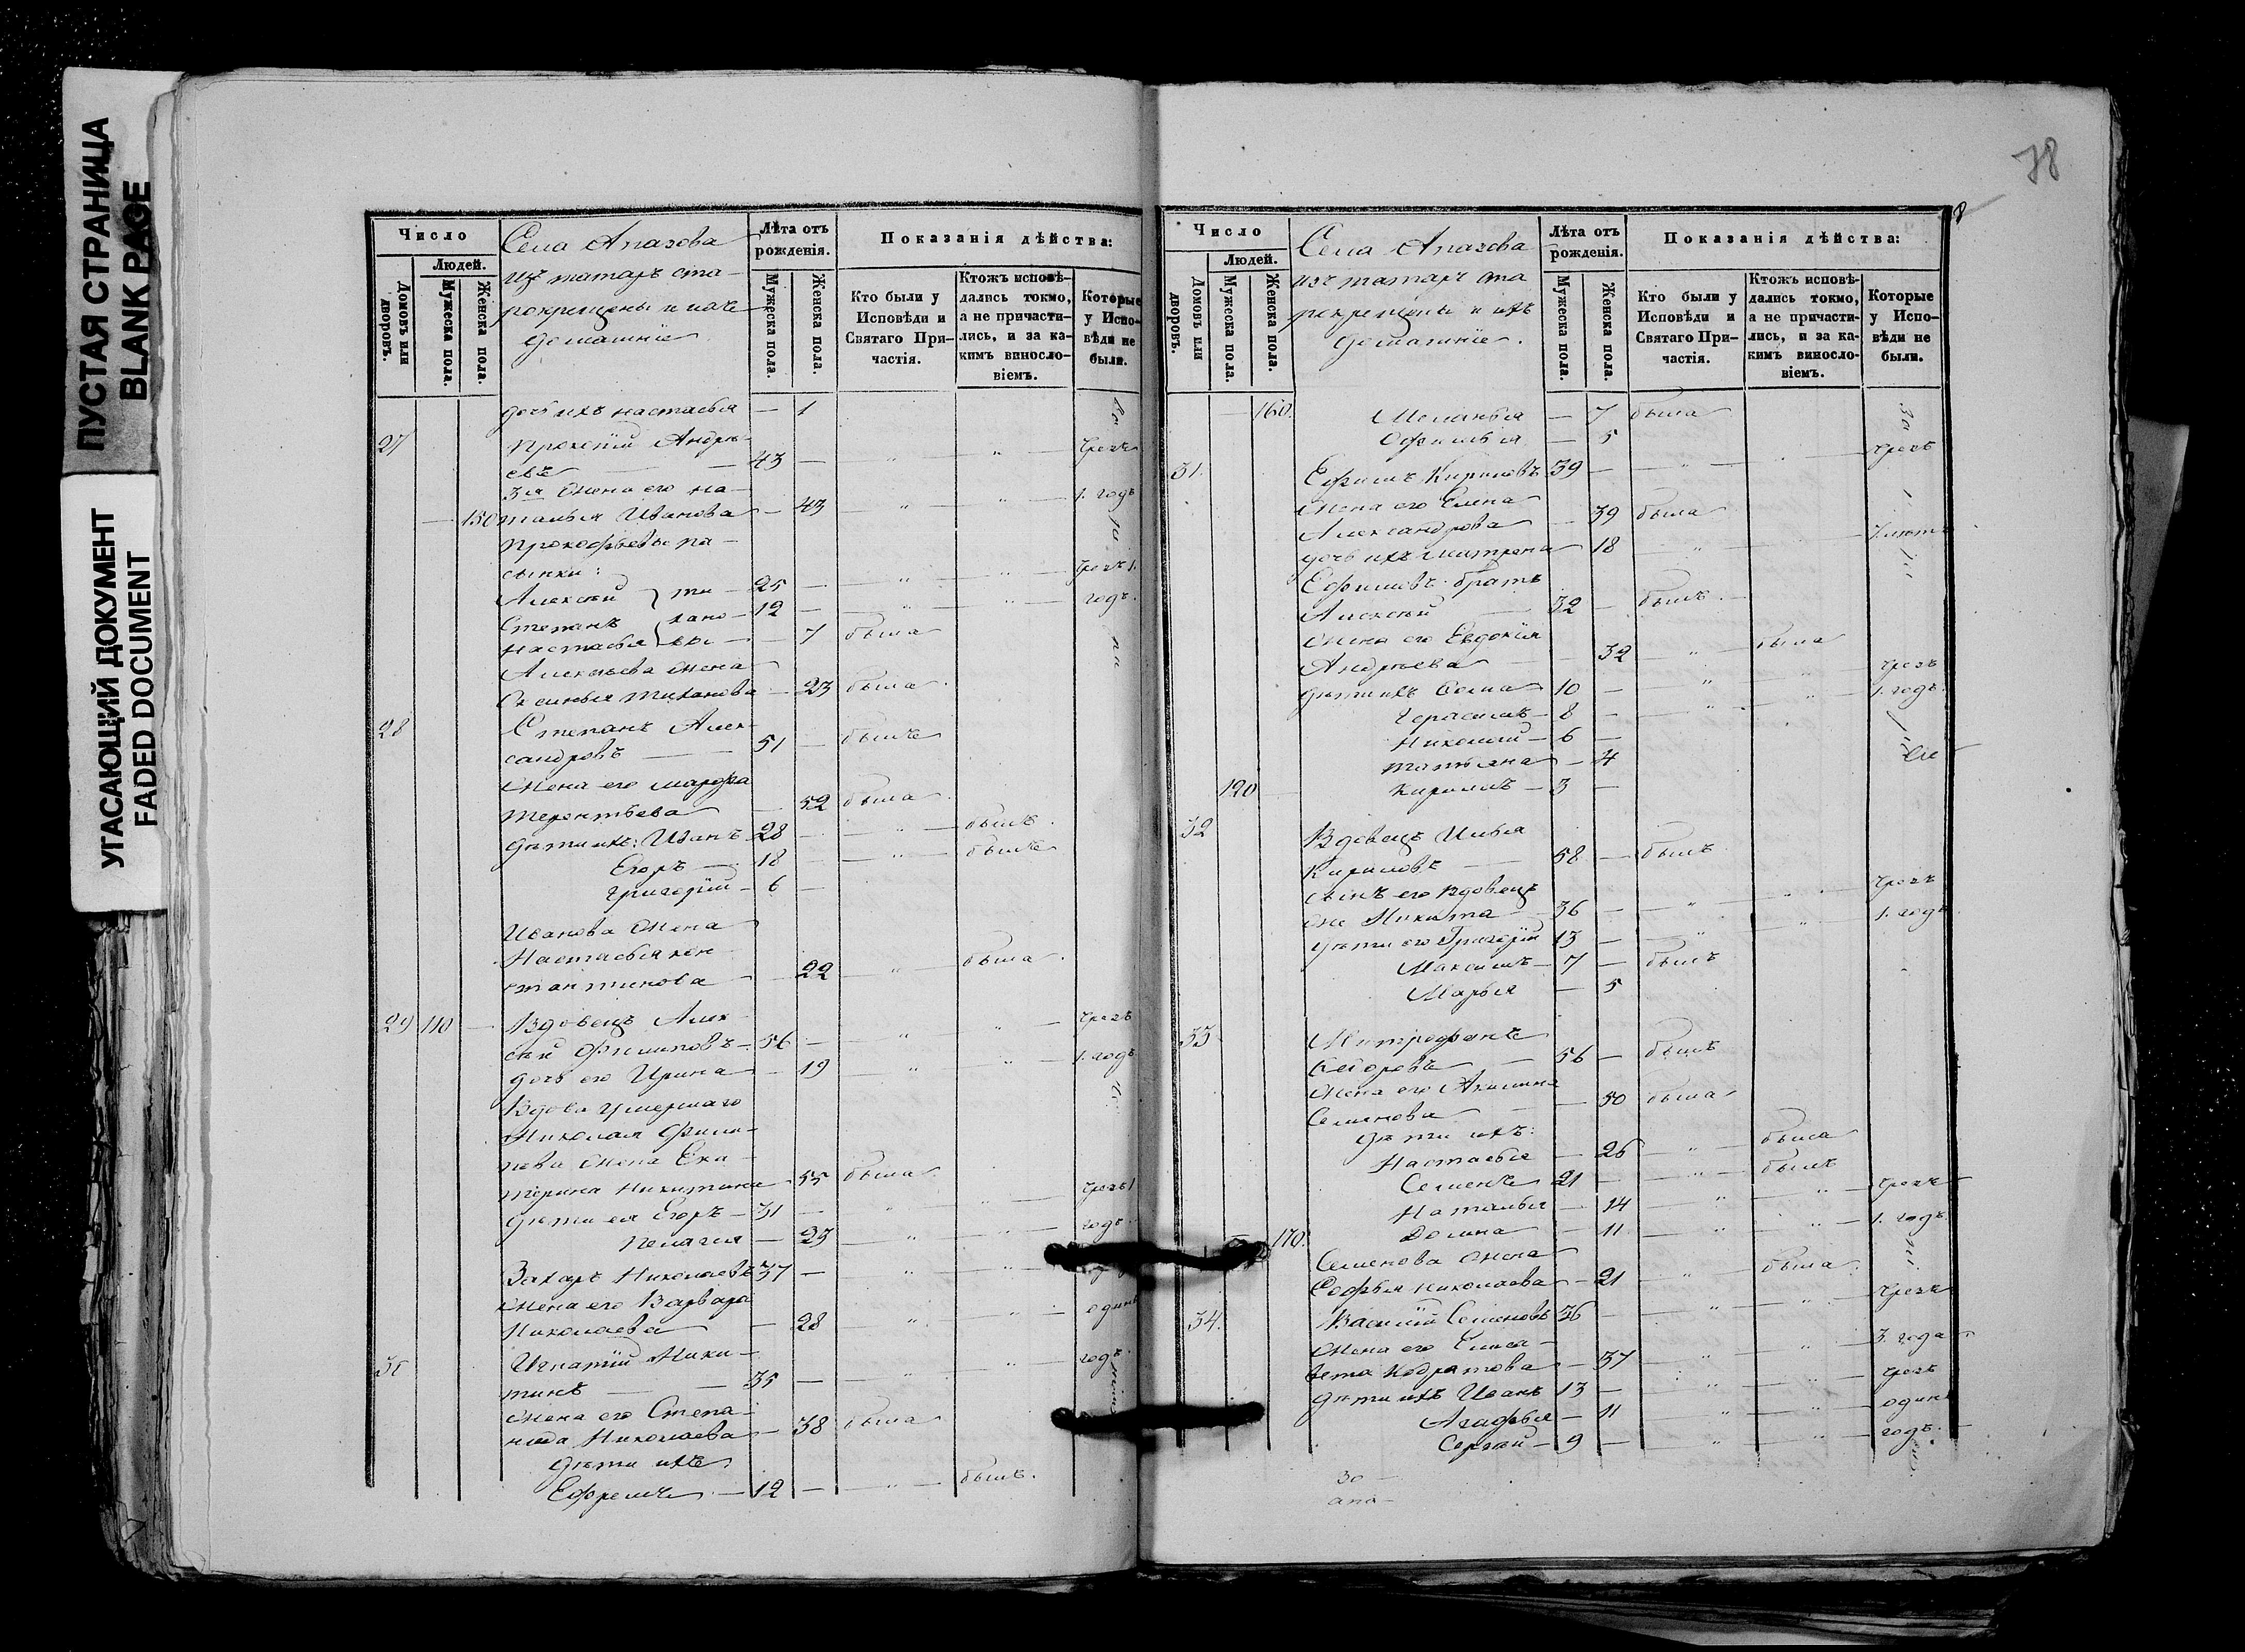 ПУСТАЯ СТРАНИЦА
BLANK PAGE
УГАСАЮЩИЙ ДОКУМЕНТ
FADED DOCUMENT
Число
Людей.
Домовъ или дворовъ.
Мужеска пола.
Женска пола.
Села Апазова
изъ татаръ ста-
рокрещены и ихъ
домашніе
Лѣта отъ рожденія.
Мужеска пола.
Женска пола.
Показанія дѣйства:
Кто были у Исповѣди и Святаго При-частія.
Ктожъ исповѣ-дались токмо, а не причасти-лись, и за ка-кимъ винословіемъ.
Которые у Испо-вѣди не были.
дочь ихъ Настасья — 1
27 Прокопій Андре-
евъ — 43 — " " чрезъ
3я жена его На-
— 150 талья Иванова — 43 " " 1. годъ
Прокофьевы па-
сынки:
Алексѣй 25 — " " чрезъ 1.
Степанъ 12 — " " годъ.
Настасья — 7 была
Алексѣева жена
Ксинья Тиханова — 23 была
28 Степанъ Алек-
сандровъ — 51 — былъ
жена его Марфа
Терентьева — 52 была
дѣти ихъ: Иванъ 28 — " былъ.
Егоръ — 18 — " былъ
Григорій — 6 —
Иванова жена
Настасья Кон-
стантинова — 22 " была
29 110 — Вдовецъ Алек-
сѣй Филиповъ — 56 — " " чрезъ
дочь его Ирина — 19 " " 1. годъ
Вдова умершаго
Николая Фили-
пова жена Ека-
терина Никитина — 55 была
дѣти ея Егоръ — 31 — " " чрезъ 1
Пелагея — 23 " " годъ.
Захаръ Николаевъ 37 — " "
жена его Варвара
Николаева — 28 " " одинъ
Игнатій Ники-
тинъ — 35 — " " годъ.
жена его Степа-
нида Николаева — 38 была
дѣти ихъ
Ефремъ — 12 — " былъ.
78
Число
Людей.
Домовъ или дворовъ.
Мужеска пола.
Женска пола.
Села Апазова
изъ татаръ ста
рокрещены и ихъ
домашніе.
Лѣта отъ рожденія.
Мужеска пола.
Женска пола.
Показанія дѣйства:
Кто были у Исповѣди и Святаго При-частія.
Ктожъ исповѣ-дались токмо, а не причасти-лись, и за ка-кимъ винословіемъ.
Которые у Испо-вѣди не были.
— 160. Меланья — 7 была
Офимья — 5
31. Ефимъ Кириловъ 39 — " " чрезъ
жена его Елена
Александрова — 39 была
дочь ихъ Матрена 18 "
Ефимовъ братъ
Алексѣй 32 — былъ
жена его Евдокія
Андреева — 32 " была
дѣти ихъ Сома 10 — " " чрезъ
Герасимъ — 8 — " " 1. годъ.
Николай — 6 —
Татьяна — 4
120 Кирилъ — 3 —
32 Вдовецъ Илья
Кириловъ 58 — былъ
сынъ его вдовецъ
же Никита 36 — " " чрезъ
дѣти его Григорій 13 — " " 1. годъ
Максимъ — 7 — былъ
Марья — 5
33 Митрофанъ
Ѳедоровъ 56 — былъ
жена его Акилина
Семенова — 50 была
дѣти ихъ:
Настасья — 26 " была
Семенъ 21 — " былъ
Наталья — 14 " " чрезъ
170. Домна — 11 " " 1. годъ
Семенова жена
Софья Николаева — 21 " была
34. Василій Семеновъ 36 — " " чрезъ
жена его Елиса-
вета Кодратова — 37 " " 3. года
дѣти ихъ Иванъ 13 — " " чрезъ
Агафья — 11 " " одинъ
Сергѣй — 9 — " " годъ.